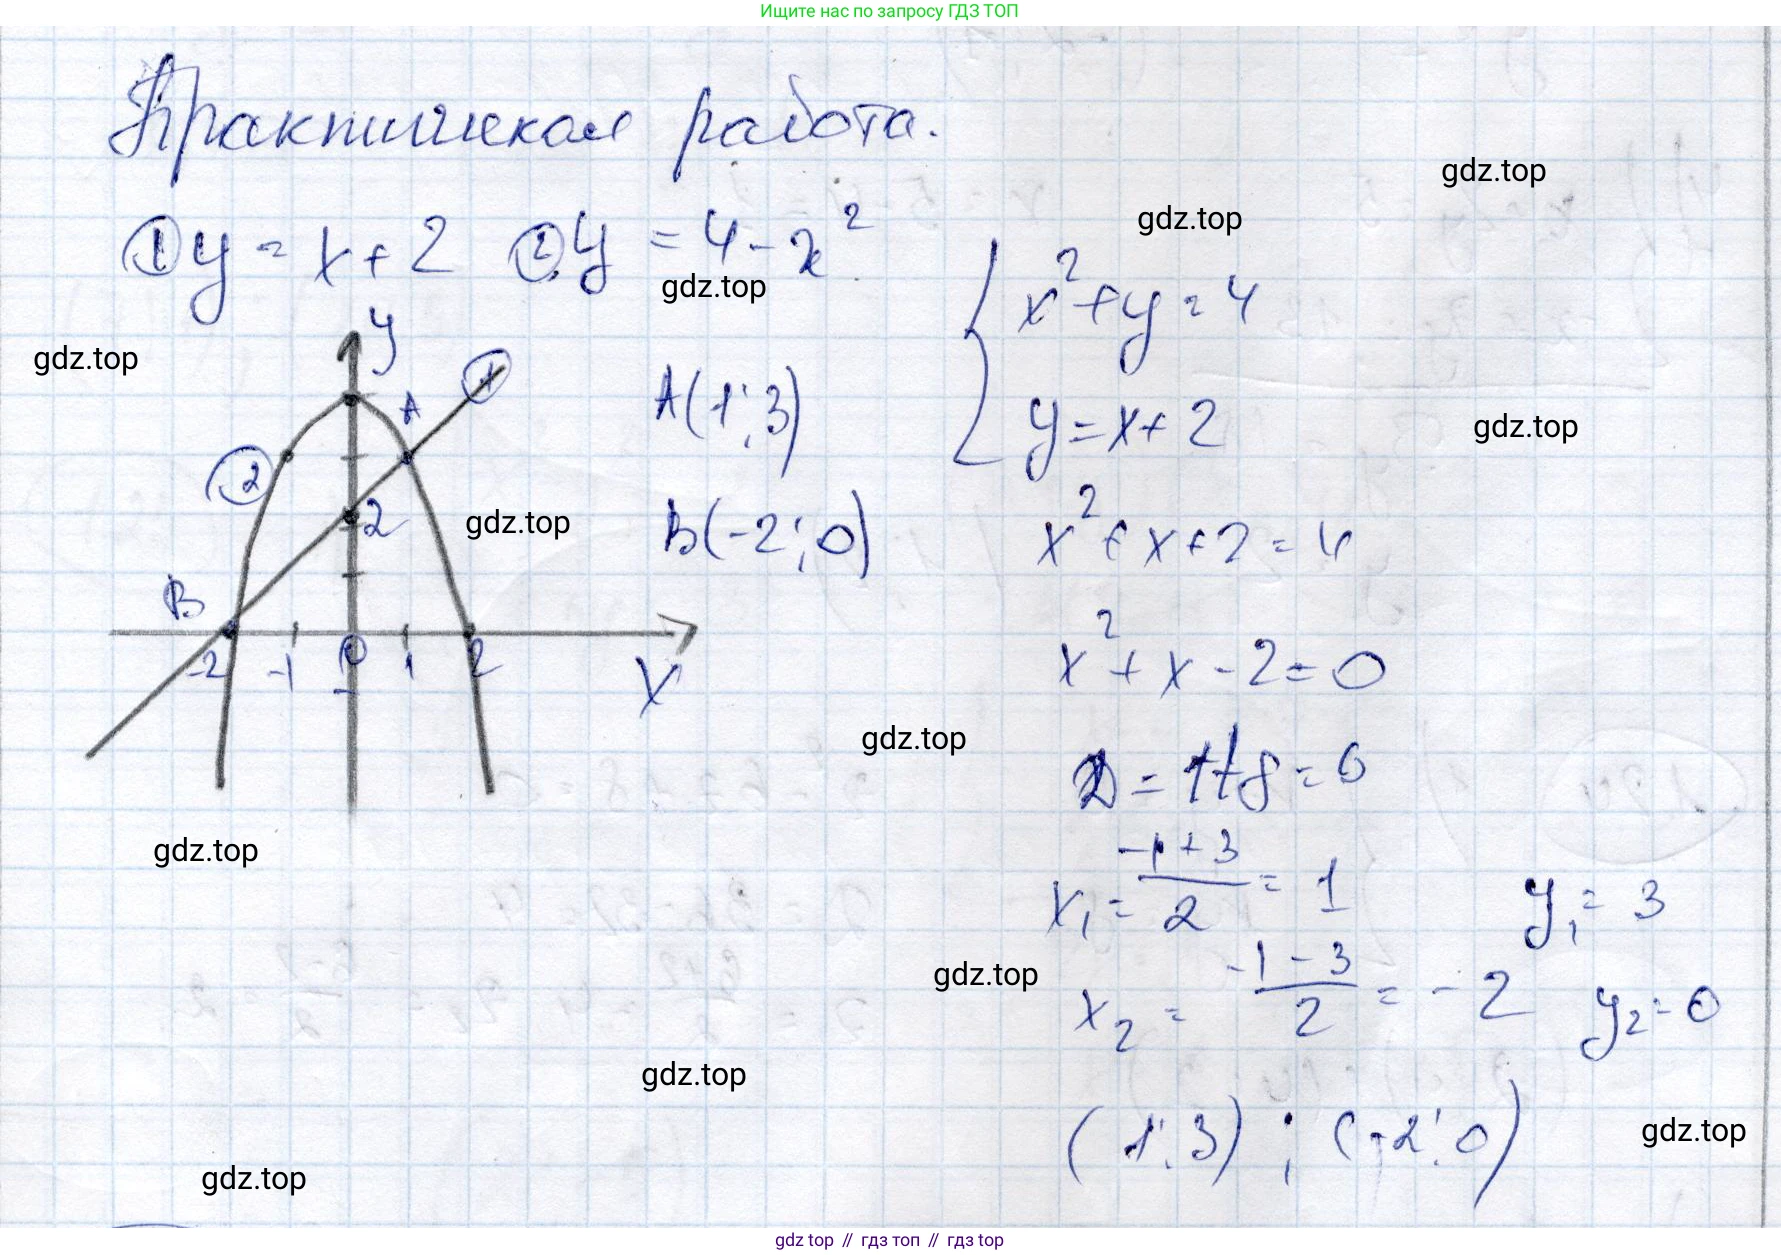 Ищите нас по запросу ГДЗ ТОП
Практическая работа.
gdz.top
gdz.top
① y = x + 2 ② y = 4 - x²
gdz.top
{ x² + y = 4
y = x + 2
y
gdz.top
1
A
A(1; 3)
gdz.top
2
2
gdz.top
B(-2; 0)
x² + x + 2 = 4
B
-2 -1 0 1 2
X
x² + x - 2 = 0
gdz.top
D = 1+8 = 6
gdz.top
x₁ = (-1 + 3)/2 = 1 y₁ = 3
gdz.top
x₂ = (-1 - 3)/2 = -2 y₂ = 0
gdz.top
(1; 3) ; (-2; 0)
gdz.top
gdz.top
gdz top // гдз топ // gdz top